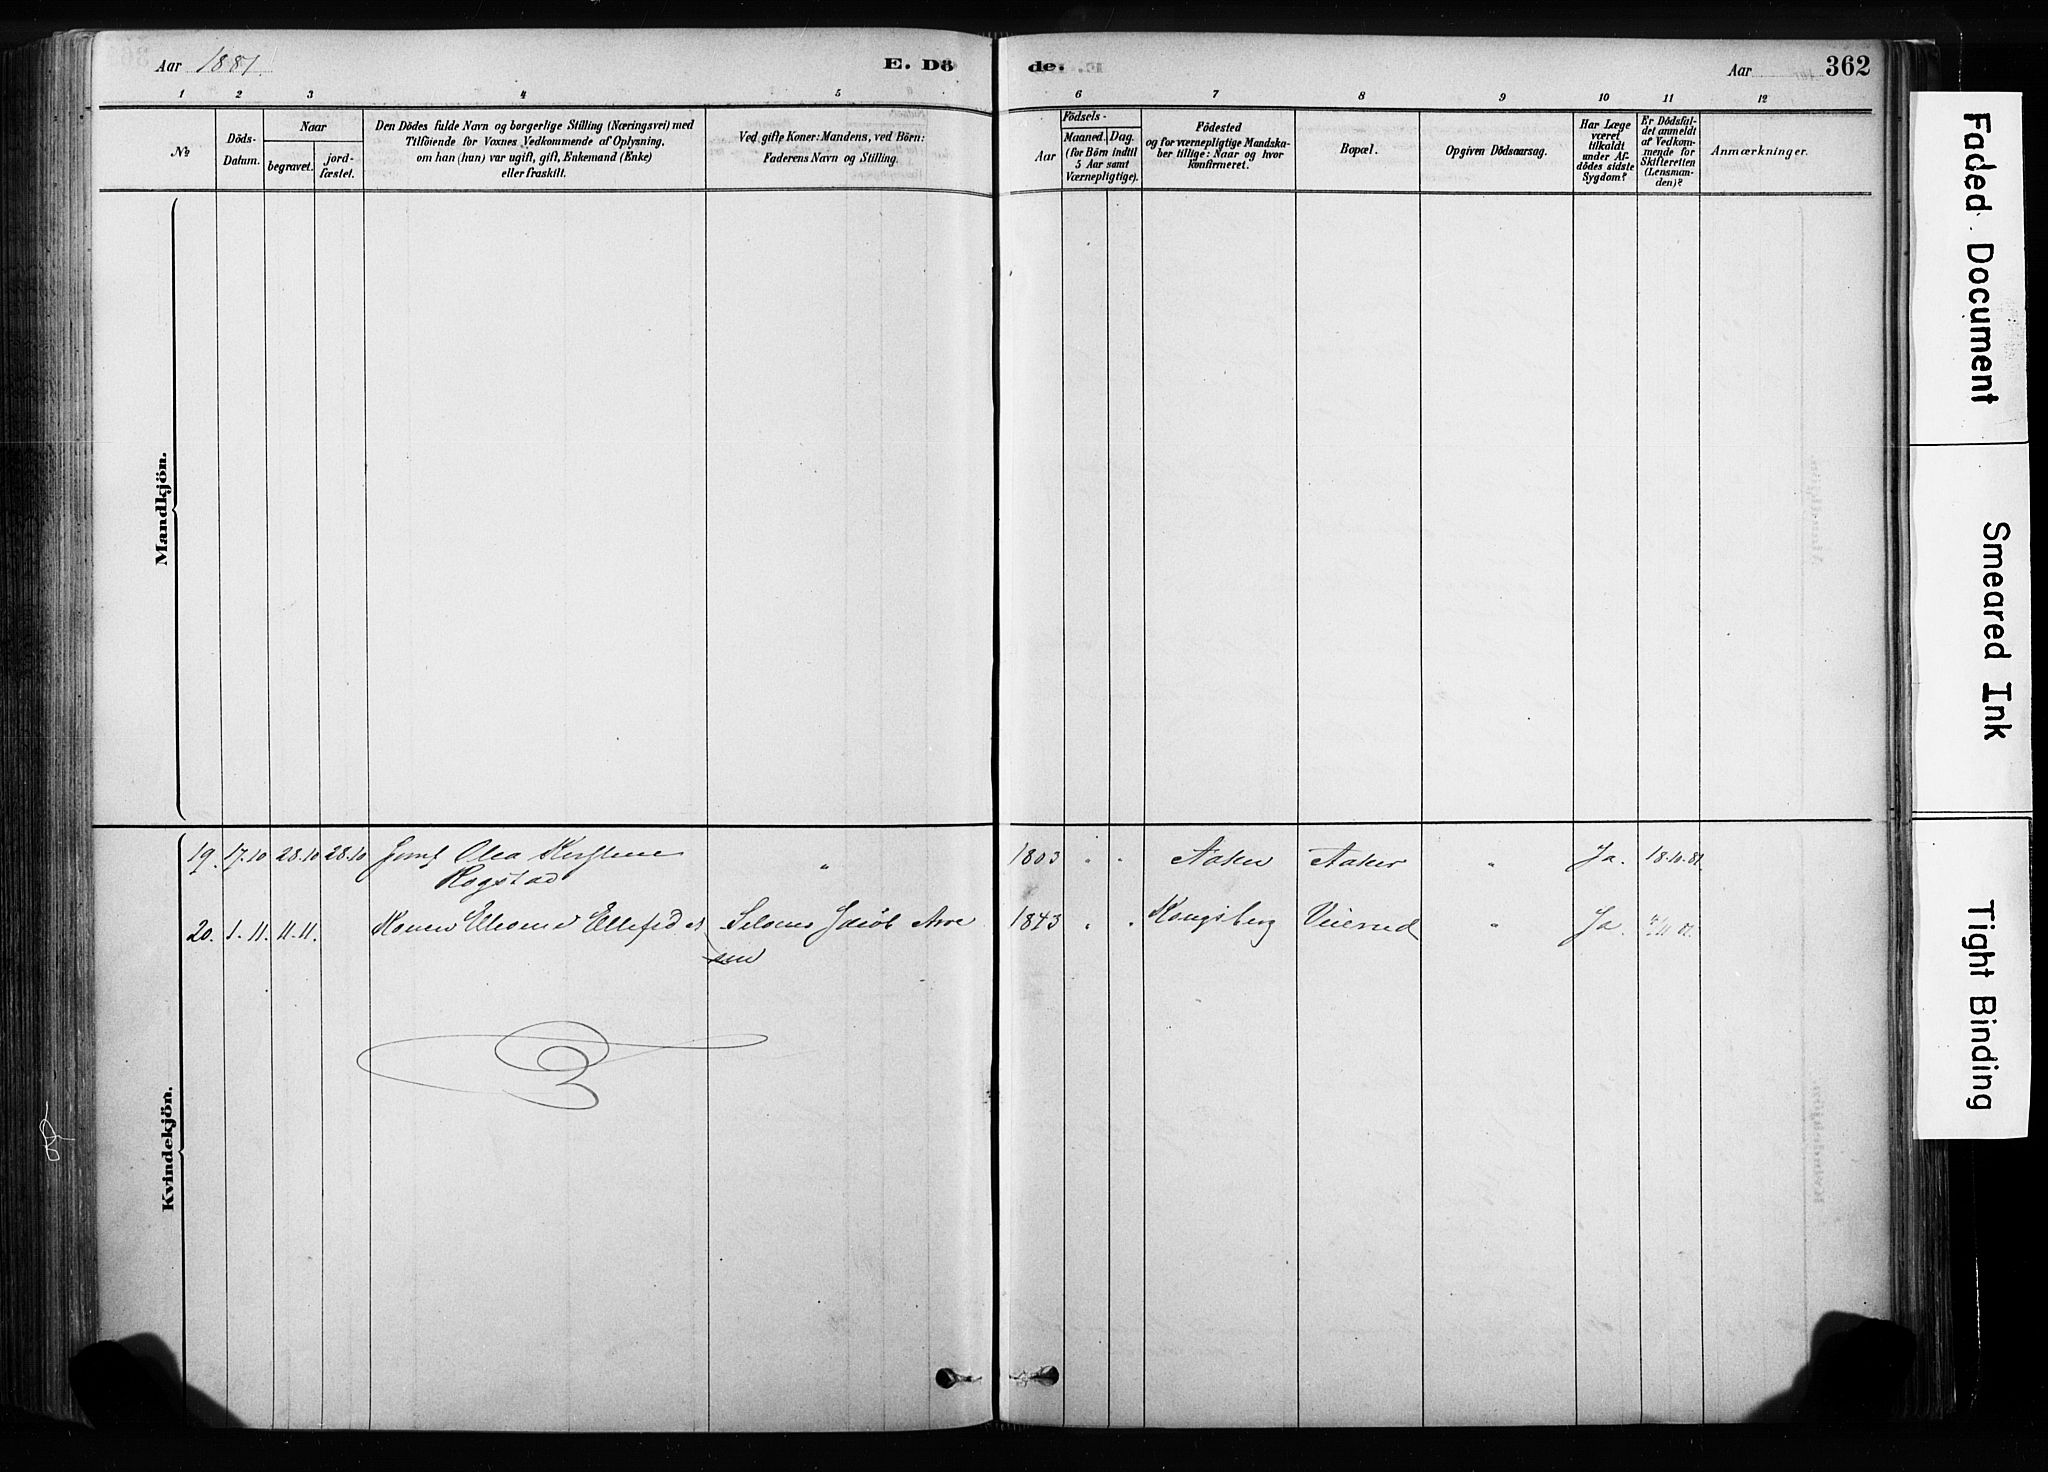 Aar 1881. E. Dö de. Aar 362
1 2 3 4 5 6 7 8 9 10 11 12
№
Döds-Datum.
Naar
begravet.
jord-fæstet.
Den Dödes fulde Navn og borgerlige Stilling (Næringsvei) med
Tilföiende for Voxnes Vedkommende af Oplysning,
om han (hun) var ugift, gift, Enkemand (Enke)
eller fraskilt.
Ved gifte Koner: Mandens, ved Börn:
Faderens Navn og Stilling.
Födsels-
Aar
Maaned. Dag.
(for Börn indtil
5 Aar samt
Værnepligtige).
Födested
og for værnepligtige Mandska-
ber tillige: Naar og hvor
konfirmeret.
Bopæl.
Opgiven Dödsaarsag.
Har Læge
været
tilkaldt
under Af-
dödes sidste
Sygdom?
Er Dödsfal-
det anmeldt
af Vedkom-
mende for
Skifteretten
(Lensman-
den)?
Anmærkninger.
Mandkjön.
Kvindekjön.
19. 17.10 28.10 28.10 Jomf Olea " 1803 " " Aaker Aaker " Ja. 18.10.81.
Hogstad
20. 1.11. 11.11. Konen Ellefsd Jacob 1843 " " Kongsberg " Ja
sen
Faded Document
Smeared Ink
Tight Binding